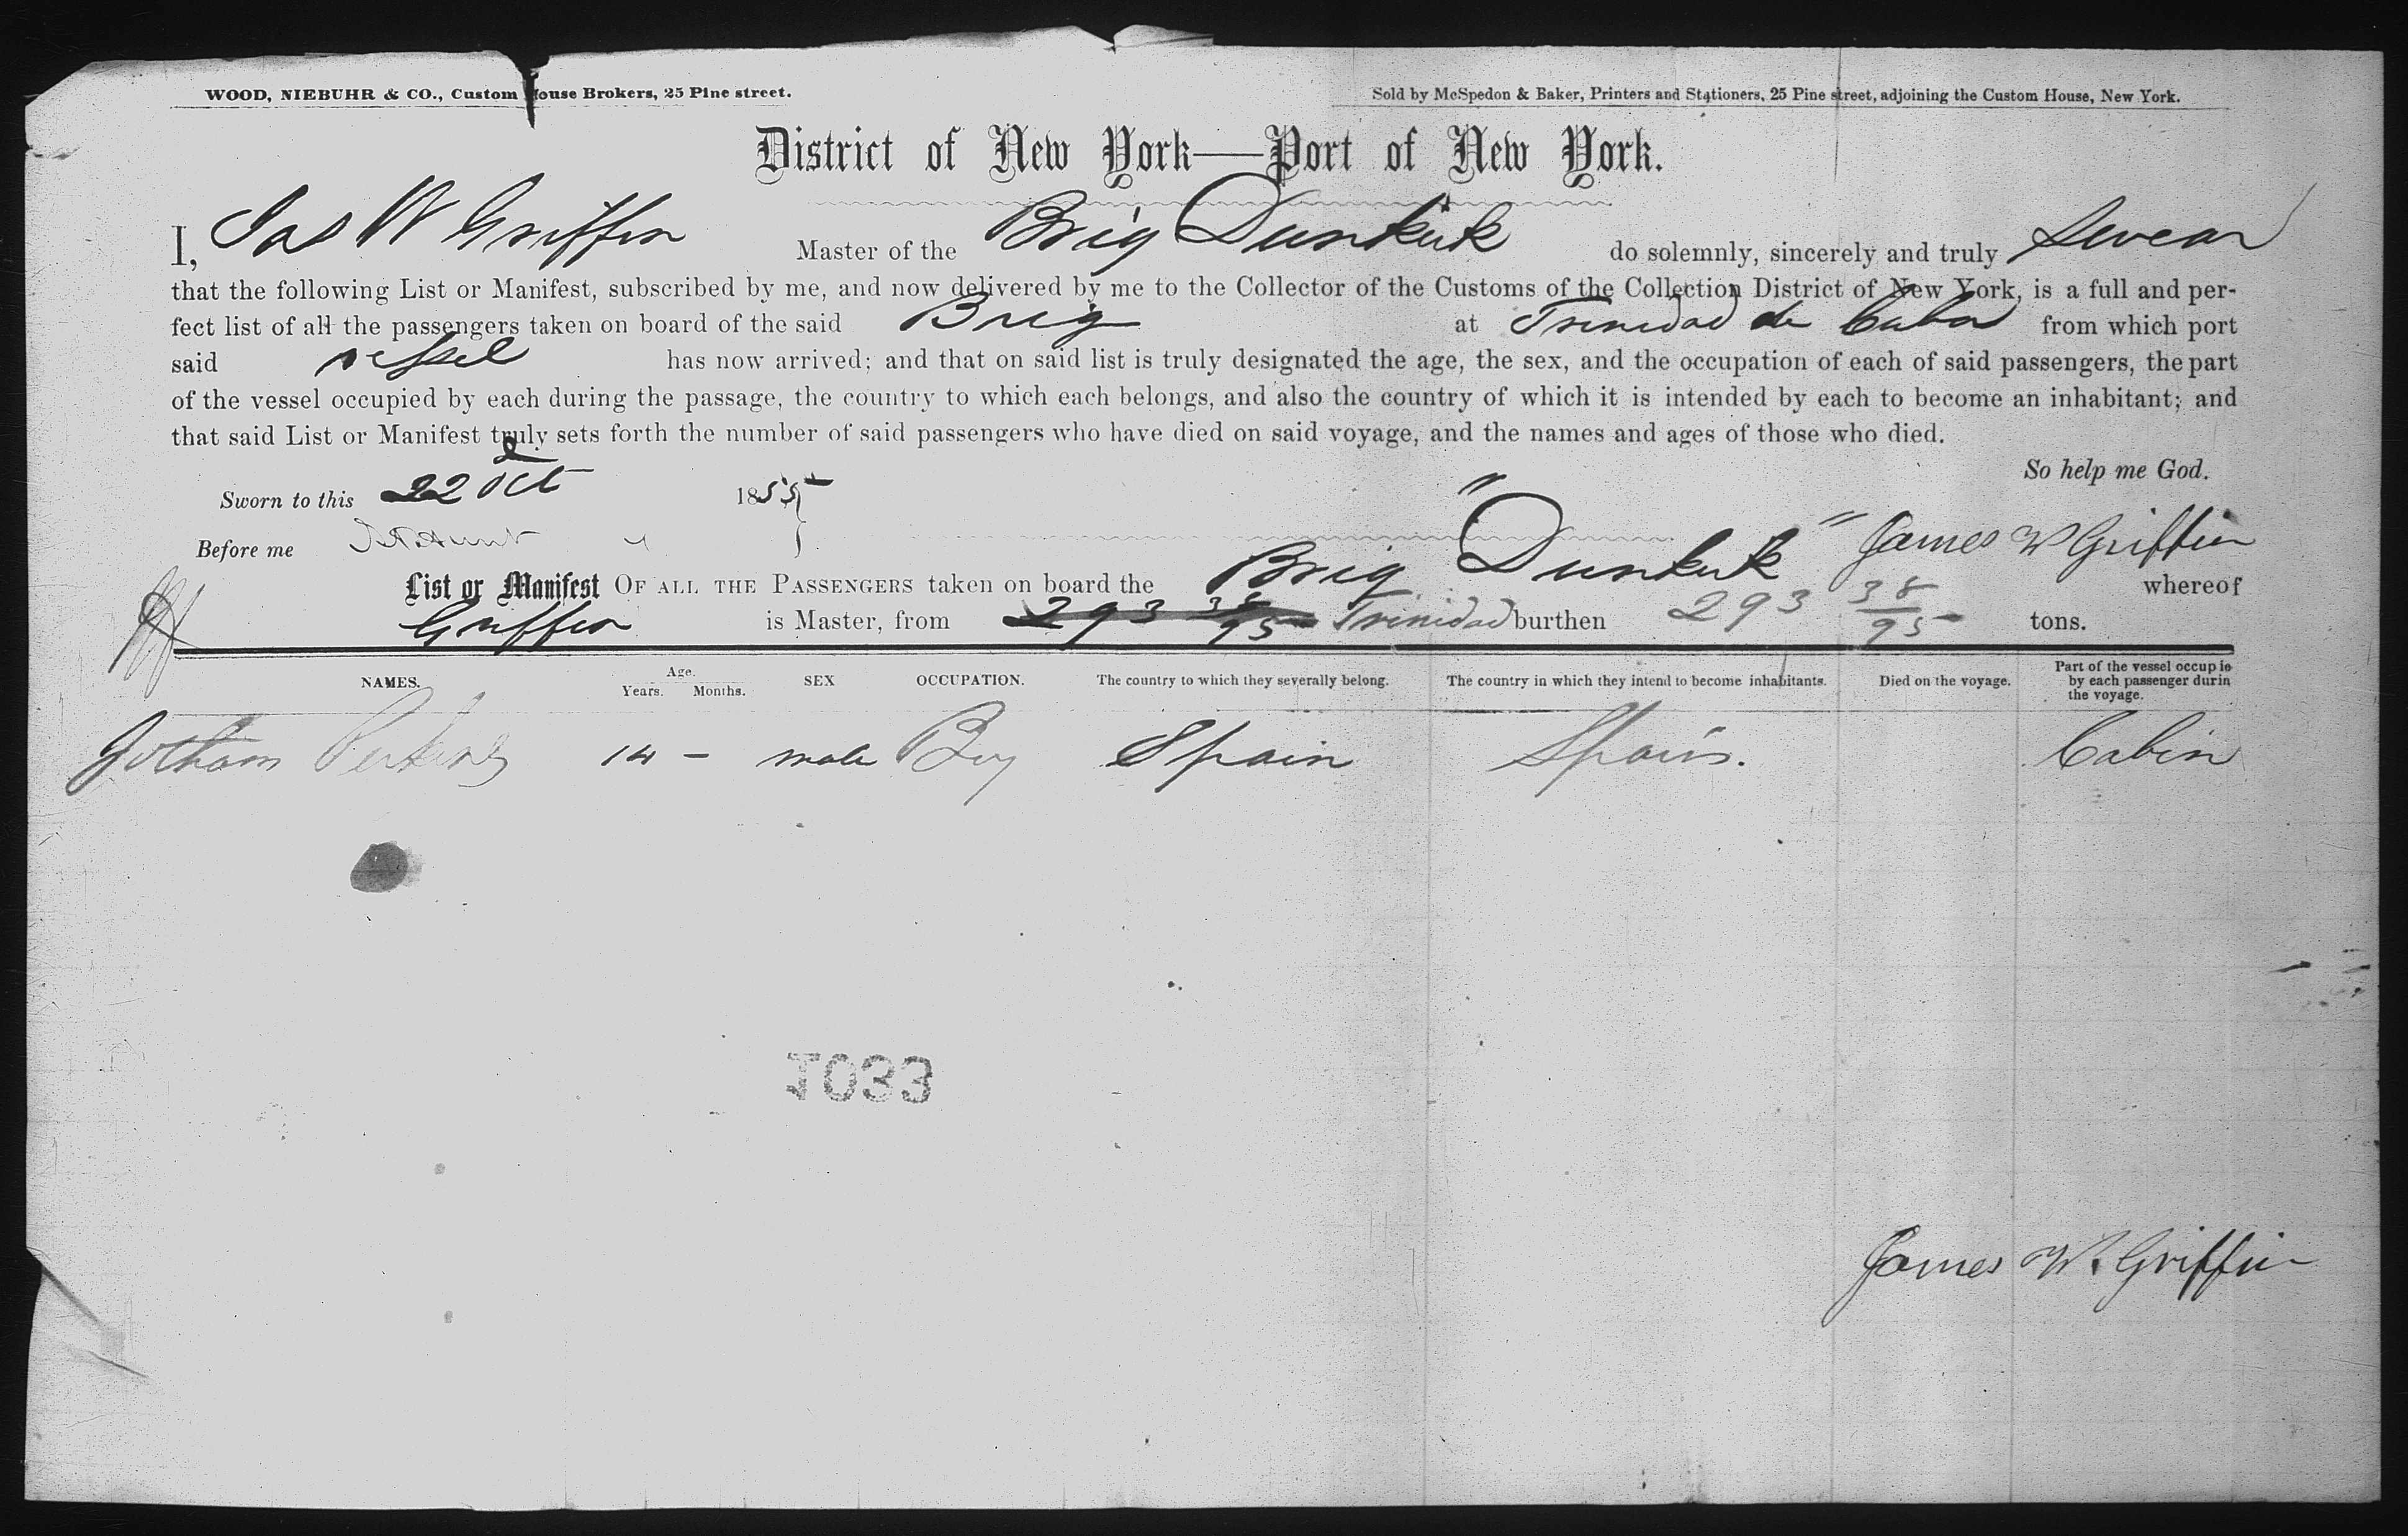 WOOD, NIEBUHR & CO., Custom House Brokers, 25 Pine street.
Sold by McSpedon & Baker, Printers and Stationers, 25 Pine street, adjoining the Custom House, New York.
District of New York—Port of New York.
I, Jas W Griffin Master of the Brig Dunkirk do solemnly, sincerely and truly Swear
that the following List or Manifest, subscribed by me, and now delivered by me to the Collector of the Customs of the Collection District of New York, is a full and per-
fect list of all the passengers taken on board of the said Brig at Trinidad de Cuba from which port
said vessel has now arrived; and that on said list is truly designated the age, the sex, and the occupation of each of said passengers, the part
of the vessel occupied by each during the passage, the country to which each belongs, and also the country of which it is intended by each to become an inhabitant; and
that said List or Manifest truly sets forth the number of said passengers who have died on said voyage, and the names and ages of those who died.
So help me God.
Sworn to this 22 Oct 1855
Before me
James W Griffin
List or Manifest OF ALL THE PASSENGERS taken on board the Brig "Dunkirk" whereof
Griffin is Master, from 293 38/95 Trinidad burthen 293 38/95 tons.
NAMES. Age. Years. Months. SEX OCCUPATION. The country to which they severally belong. The country in which they intend to become inhabitants. Died on the voyage. Part of the vessel occupie by each passenger durin the voyage.
Jotham Perkins 14 – male Boy Spain Spain. Cabin
1033
James W. Griffin